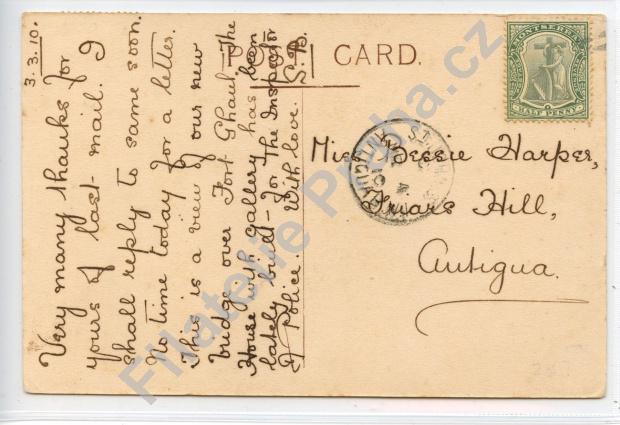 3.3.10.
Very many thanks for
yours of last mail. I
shall reply to same soon.
No time today for a letter.
This is a view of our new
bridge over Fort Ghaut. The
House with gallery has been
lately built for The Inspector
of Police. With love. S.D.
POST CARD.
MONTSERRAT
HALF PENNY
Miss Bessie Harper,
Friars Hill,
Antigua.
ST. JOHN'S
ANTIGUA
Filatelie Praha.cz